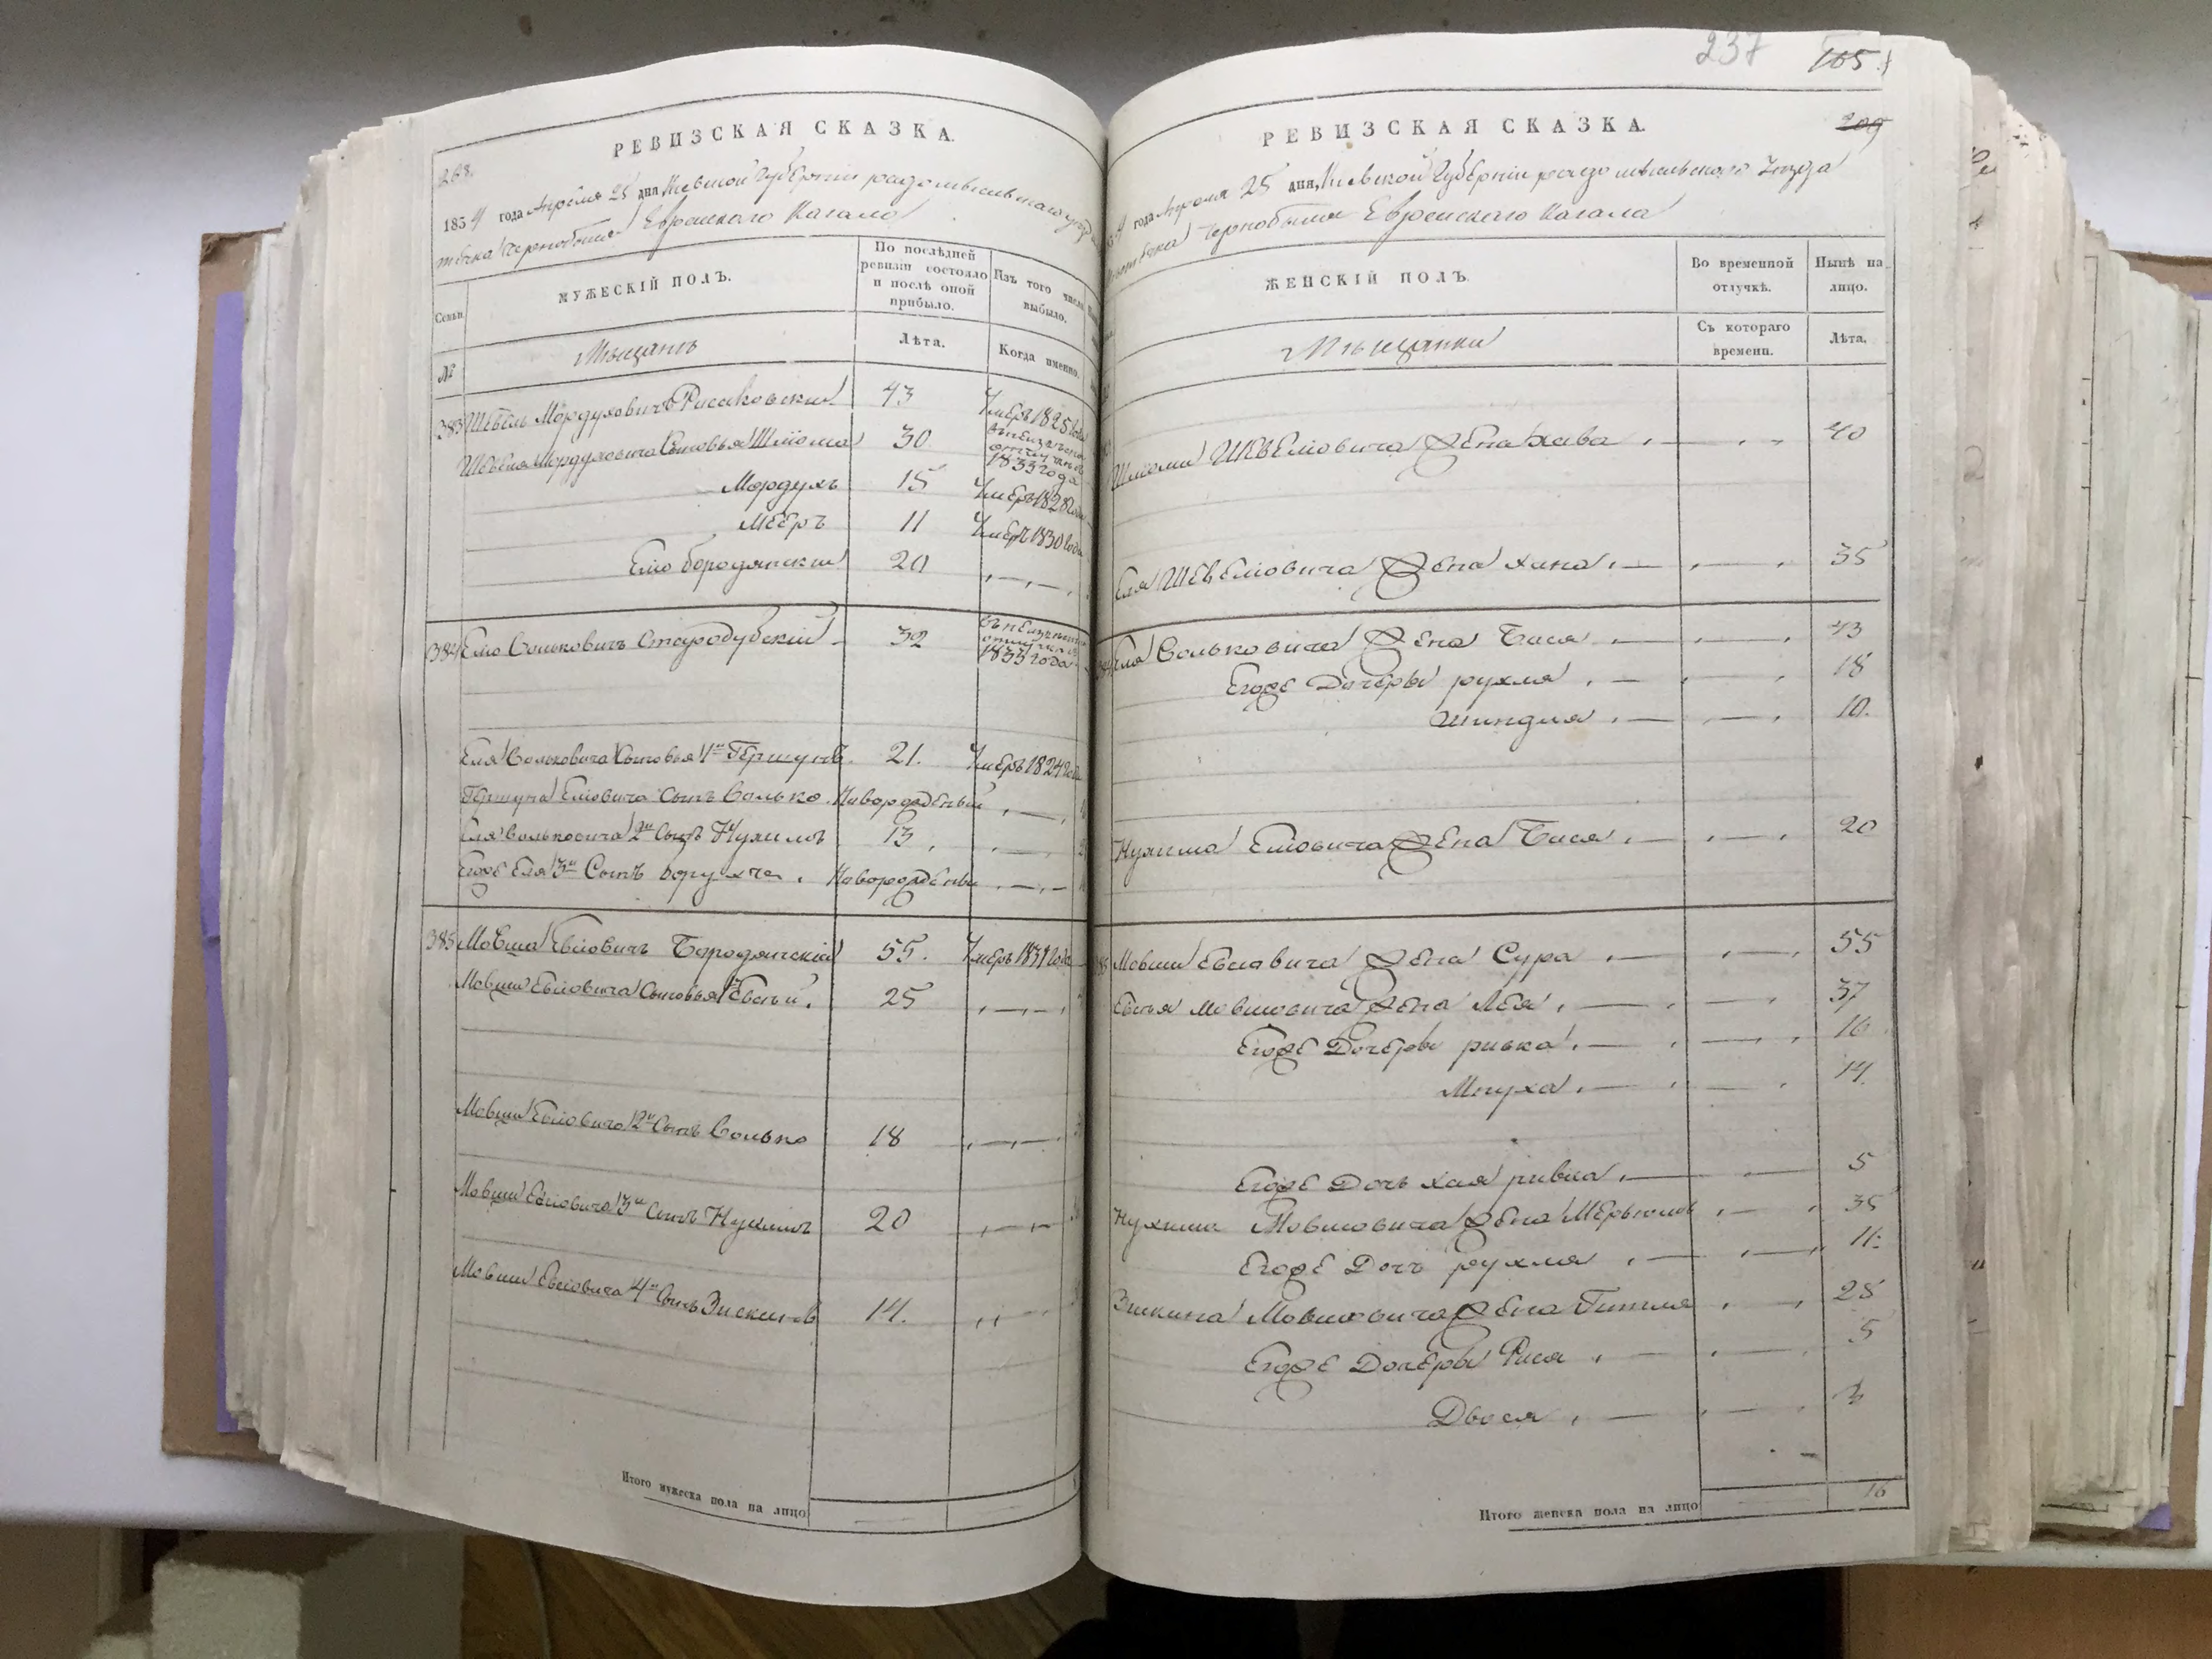 268.
РЕВИЗСКАЯ СКАЗКА.
1834 года Апреля 25 дня Киевской Губернии радомысльского уезда
мѣстечка Чернобыля Еврейского Кагала
Семьи
МУЖЕСКІЙ ПОЛЪ.
По послѣдней ревизіи состояло и послѣ оной прибыло.
Изъ того числа выбыло.
№
Мещанъ
Лѣта.
Когда именно.
383 Шевель Мордуховичъ 43 Умеръ 1825 года
Шевеля Мордуховича Сыновья Шліома 30 1833 года
Мордухъ 15 Умеръ 1828 года
Мееръ 11 Умеръ 1830 года
Елio бородянский 20
384 Елio Вольковичъ Стародубскій 32 1833 года
Еля Вольковича Сыновья 1й Гершунъ. 21. Умеръ 1824 года
Гершуна Елiовича сынъ Волько. Новорожденый
Еля Вольковича 2й Сынъ Нухимъ 13
Егоже Еля 3й Сынъ Борухъ. Новорожденый
385 Мовша Евсiовичъ Бородянскiй 55. Умеръ 1831 года
Мовши Евсiовича Сыновья 1й Евсѣй. 25
Мовши Евсiовича 2й Сынъ Волько 18
Мовши Евсiовича 3й Сынъ Нухимъ 20
Мовши Евсiовича 4й Сынъ Зискинъ 14.
Итого мужеска пола на лицо
237 165
209
РЕВИЗСКАЯ СКАЗКА.
года Апреля 25 дня, Киевской Губернiи радомысльского Уезда
Чернобыля Еврейского Кагала
ЖЕНСКІЙ ПОЛЪ.
Во временной отлучкѣ.
Нынѣ на лицо.
Мѣщанки
Съ котораго времени.
Лѣта.
Шлiомы Шевелiовича Жена Хава 40
Еля Шевелiовича Жена хана 35
Еля Вольковича Жена Бася 43
Егоже Дочеры рухля 18
Шиндля 10.
Нухима Елiовича Жена Бася 20
Мовши Евсiовича Жена Сура 55
Евсѣя Мовшовича Жена Лея 37
Егоже Дочеры ривка 16
Мнуха 14.
Егоже Дочь хая ривка 5
Нухима Мовшовича Жена 35
Егоже Дочь рухля 11.
Зискина Мовшовича Жена Гитля 28
Егоже Дочеры Рися 5
Двося 3
Итого женска пола на лицо 16